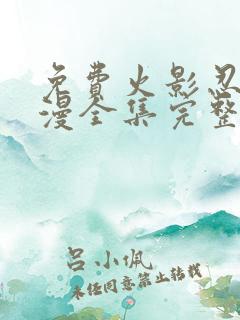 免費火影忍
漫全集完整
吕小佩
未经同意禁止转载